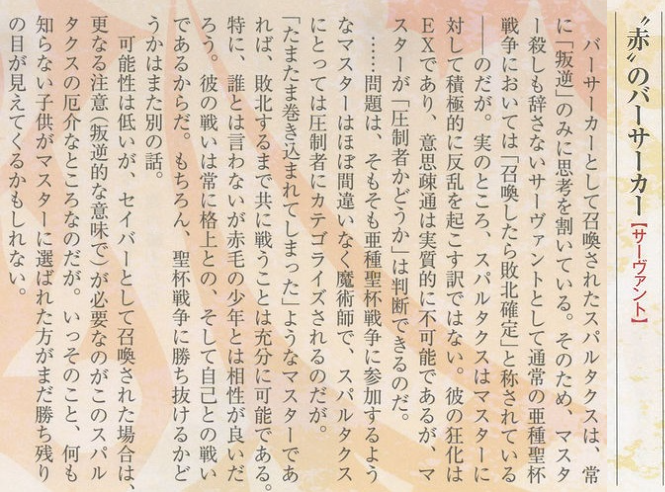 “赤”のバーサーカー【サーヴァント】
バーサーカーとして召喚されたスパルタクスは、常
に「叛逆」のみに思考を割いている。そのため、マスタ
ー殺しも辞さないサーヴァントとして通常の亜種聖杯
戦争においては「召喚したら敗北確定」と称されている
――のだが。実のところ、スパルタクスはマスターに
対して積極的に反乱を起こす訳ではない。彼の狂化は
EXであり、意思疎通は実質的に不可能であるが、マ
スターが「圧制者かどうか」は判断できるのだ。
……問題は、そもそも亜種聖杯戦争に参加するよう
なマスターはほぼ間違いなく魔術師で、スパルタクス
にとっては圧制者にカテゴライズされるのだが。
「たまたま巻き込まれてしまった」ようなマスターであ
れば、敗北するまで共に戦うことは充分に可能である。
特に、誰とは言わないが赤毛の少年とは相性が良いだ
ろう。彼の戦いは常に格上との、そして自己との戦い
であるからだ。もちろん、聖杯戦争に勝ち抜けるかど
うかはまた別の話。
可能性は低いが、セイバーとして召喚された場合は、
更なる注意（叛逆的な意味で）が必要なのがこのスパル
タクスの厄介なところなのだが。いっそのこと、何も
知らない子供がマスターに選ばれた方がまだ勝ち残り
の目が見えてくるかもしれない。